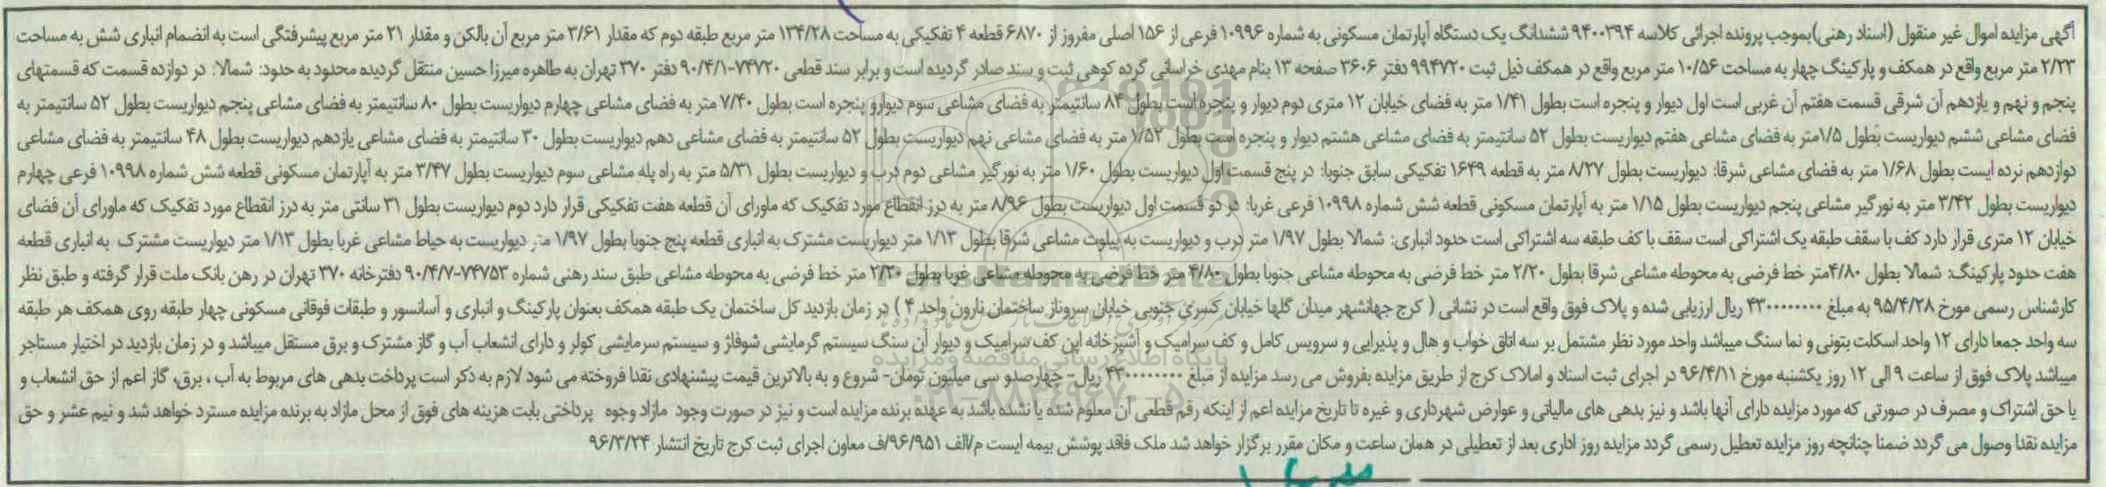 آگهی مزایده اموال غیر منقول (اسناد رهنی) بموجب پرونده اجرائی کلاسه ۹۴۰۰۳۹۴ ششدانگ یک دستگاه آپارتمان مسکونی به شماره ۱۰۹۹۶ فرعی از ۱۵۶ اصلی مفروز از ۶۸۷۰ قطعه ۴ تفکیکی به مساحت ۱۳۴/۲۸ متر مربع طبقه دوم که مقدار ۳/۶۱ متر مربع آن بالکن و مقدار ۲۱ متر مربع پیشرفتگی است به انضمام انباری شش به مساحت
۲/۲۳ متر مربع واقع در همکف و پارکینگ چهار به مساحت ۱۰/۵۶ متر مربع واقع در همکف ذیل ثبت ۹۹۴۷۲۰ دفتر ۳۶۰۶ صفحه ۱۳ بنام مهدی خراسانی گرده کوهی ثبت و سند صادر گردیده است و برابر سند قطعی ۷۴۷۲۰-۹۰/۴/۱ دفتر ۳۷۰ تهران به طاهره میرزا حسین منتقل گردیده محدود به حدود: شمالا: در دوازده قسمت که قسمتهای
پنجم و نهم و یازدهم آن شرقی قسمت هفتم آن غربی است اول دیوار و پنجره است بطول ۱/۴۱ متر به فضای خیابان ۱۲ متری دوم دیوار و پنجره است بطول ۸۴ سانتیمتر به فضای مشاعی سوم دیوارو پنجره است بطول ۷/۴۰ متر به فضای مشاعی چهارم دیواریست بطول ۸۰ سانتیمتر به فضای مشاعی پنجم دیواریست بطول ۵۲ سانتیمتر به
فضای مشاعی ششم دیواریست بطول ۱/۵متر به فضای مشاعی هفتم دیواریست بطول ۵۲ سانتیمتر به فضای مشاعی هشتم دیوار و پنجره است بطول ۱/۵۲ متر به فضای مشاعی نهم دیواریست بطول ۵۲ سانتیمتر به فضای مشاعی دهم دیواریست بطول ۳۰ سانتیمتر به فضای مشاعی یازدهم دیواریست بطول ۴۸ سانتیمتر به فضای مشاعی
دوازدهم نرده ایست بطول ۱/۶۸ متر به فضای مشاعی شرقا: دیواریست بطول ۸/۲۷ متر به قطعه ۱۶۴۹ تفکیکی سابق جنوبا: در پنج قسمت اول دیواریست بطول ۱/۶۰ متر به نورگیر مشاعی دوم درب و دیواریست بطول ۵/۳۱ متر به راه پله مشاعی سوم دیواریست بطول ۳/۴۷ متر به آپارتمان مسکونی قطعه شش شماره ۱۰۹۹۸ فرعی چهارم
دیواریست بطول ۳/۴۲ متر به نورگیر مشاعی پنجم دیواریست بطول ۱/۱۵ متر به آپارتمان مسکونی قطعه شش شماره ۱۰۹۹۸ فرعی غربا: در دو قسمت اول دیواریست بطول ۸/۹۶ متر به درز انقطاع مورد تفکیک که ماورای آن قطعه هفت تفکیکی قرار دارد دوم دیواریست بطول ۳۱ سانتی متر به درز انقطاع مورد تفکیک که ماورای آن فضای
خیابان ۱۲ متری قرار دارد کف با سقف طبقه یک اشتراکی است سقف با کف طبقه سه اشتراکی است حدود انباری: شمالا بطول ۱/۹۷ متر درب و دیواریست به پیلوت مشاعی شرقا بطول ۱/۱۳ متر دیواریست مشترک به انباری قطعه پنج جنوبا بطول ۱/۹۷ متر دیواریست به حیاط مشاعی غربا بطول ۱/۱۳ متر دیواریست مشترک به انباری قطعه
هفت حدود پارکینگ: شمالا بطول ۴/۸۰متر خط فرضی به محوطه مشاعی شرقا بطول ۲/۲۰ متر خط فرضی به محوطه مشاعی جنوبا بطول ۴/۸۰ متر خط فرضی به محوطه مشاعی غربا بطول ۲/۲۰ متر خط فرضی به محوطه مشاعی طبق سند رهنی شماره ۷۴۷۵۳-۹۰/۴/۷ دفترخانه ۳۷۰ تهران در رهن بانک ملت قرار گرفته و طبق نظر
کارشناس رسمی مورخ ۹۵/۴/۲۸ به مبلغ ۴۳۰۰۰۰۰۰۰۰ ریال ارزیابی شده و پلاک فوق واقع است در نشانی ( کرج جهانشهر میدان گلها خیابان کسری جنوبی خیابان سروناز ساختمان نارون واحد ۴ ) در زمان بازدید کل ساختمان یک طبقه همکف بعنوان پارکینگ و انباری و آسانسور و طبقات فوقانی مسکونی چهار طبقه روی همکف هر طبقه
سه واحد جمعا دارای ۱۲ واحد اسکلت بتونی و نما سنگ میباشد واحد مورد نظر مشتمل بر سه اتاق خواب و هال و پذیرایی و سرویس کامل و کف سرامیک و آشپزخانه اپن کف سرامیک و دیوار آن سنگ سیستم گرمایشی شوفاژ و سیستم سرمایشی کولر و دارای انشعاب آب و گاز مشترک و برق مستقل میباشد و در زمان بازدید در اختیار مستاجر
میباشد پلاک فوق از ساعت ۹ الی ۱۲ روز یکشنبه مورخ ۹۶/۴/۱۱ در اجرای ثبت اسناد و املاک کرج از طریق مزایده بفروش می رسد مزایده از مبلغ ۴۳۰۰۰۰۰۰۰۰ ریال - چهارصدو سی میلیون تومان- شروع و به بالاترین قیمت پیشنهادی نقدا فروخته می شود لازم به ذکر است پرداخت بدهی های مربوط به آب ، برق، گاز اعم از حق انشعاب و
یا حق اشتراک و مصرف در صورتی که مورد مزایده دارای آنها باشد و نیز بدهی های مالیاتی و عوارض شهرداری و غیره تا تاریخ مزایده اعم از اینکه رقم قطعی آن معلوم شده یا نشده باشد به عهده برنده مزایده است و نیز در صورت وجود مازاد وجوه پرداختی بابت هزینه های فوق از محل مازاد به برنده مزایده مسترد خواهد شد و نیم عشر و حق
مزایده نقدا وصول می گردد ضمنا چنانچه روز مزایده تعطیل رسمی گردد مزایده روز اداری بعد از تعطیلی در همان ساعت و مکان مقرر برگزار خواهد شد ملک فاقد پوشش بیمه ایست م/الف ۹۶/۹۵۱/ف معاون اجرای ثبت کرج تاریخ انتشار ۹۶/۳/۲۴
ParsNamadData
پایگاه اطلاع رسانی مناقصه و مزایده
۰۲۱-۸۸۳۴۹۶۷۰-۵